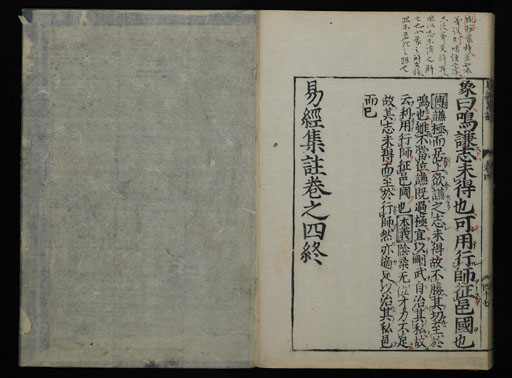 象曰鳴謙志未得也可用行師征邑國也
傳謙極而居上欲謙之志未得故不勝其切至於
鳴也雖不當位謙既過極宜以剛武自治其私故
云利用行師征邑國也本義陰柔无位才力不足
故其志未得而至於行師然亦適足以治其私邑
而已
易經集註卷之四終